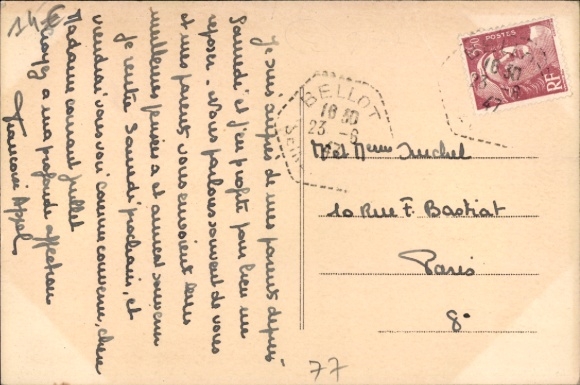 Je suis auprès de mes parents depuis
Samedi et j'en profite pour bien me
reposer. Nous parlons souvent de vous
et mes parents vous envoient leurs
meilleures pensées et amical souvenir
Je rentre Samedi prochain, et
viendrai vous voir comme convenu, chère
Madame courant juillet
Croyez à ma profonde affection
Françoise
BELLOT
18 30
23 -6
POSTES
RF
M et Mme
10 Rue F. Bastiat
Paris
8.
77